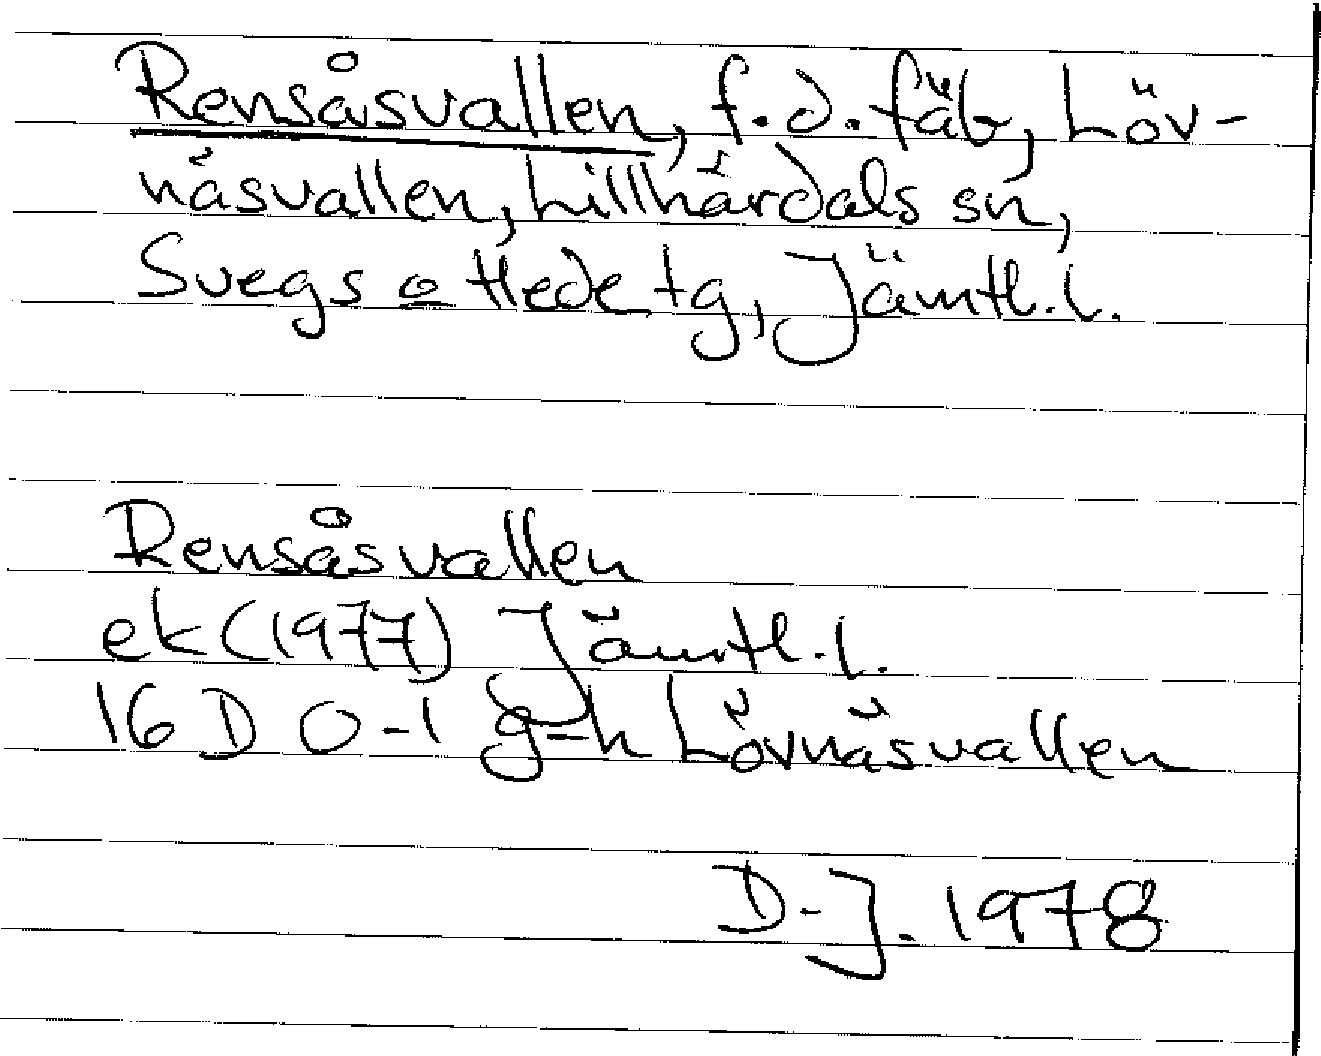 Rensåsvallen, f.d. fäb, Löv-
näsvallen, Lillhärdals sn,
Svegs o Hede tg, Jämtl. l.
Rensåsvallen
ek (1977) Jämtl. l.
16 D 0-1 g-h Lövnäsvallen
D-J. 1978